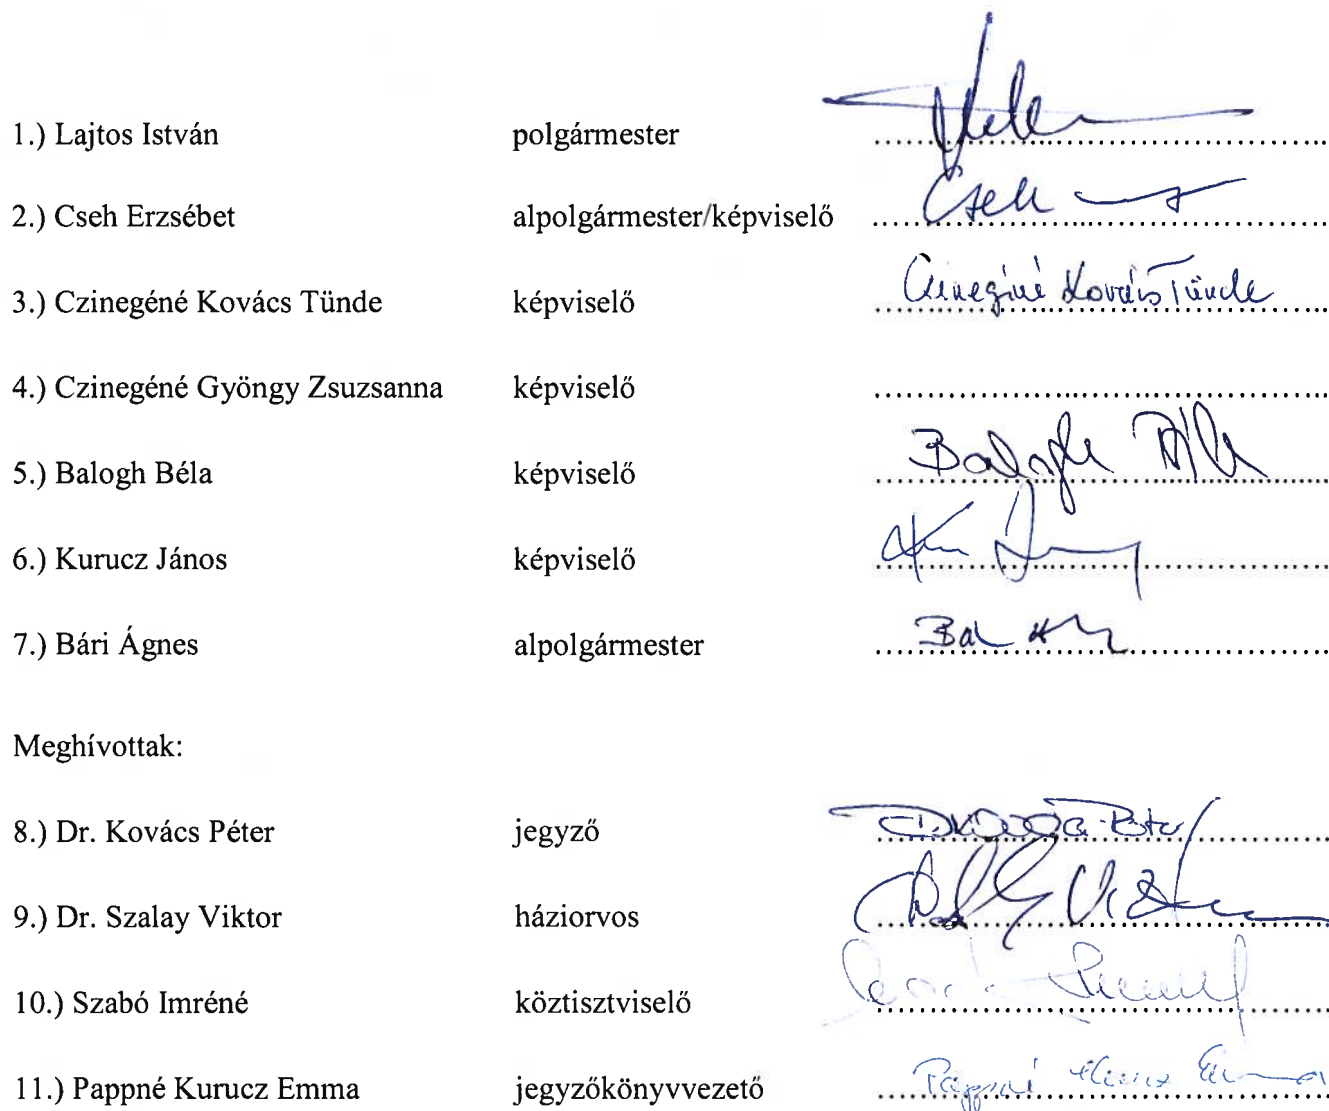 1.) Lajtos István polgármester ........................................
2.) Cseh Erzsébet alpolgármester/képviselő Cseh ........................................
3.) Czinegéné Kovács Tünde képviselő Czinegéné Kovács Tünde ........................................
4.) Czinegéné Gyöngy Zsuzsanna képviselő ........................................
5.) Balogh Béla képviselő Balogh Béla ........................................
6.) Kurucz János képviselő ........................................
7.) Bári Ágnes alpolgármester ........................................
Meghívottak:
8.) Dr. Kovács Péter jegyző ........................................
9.) Dr. Szalay Viktor háziorvos ........................................
10.) Szabó Imréné köztisztviselő ........................................
11.) Pappné Kurucz Emma jegyzőkönyvvezető Pappné Kurucz Emma ........................................